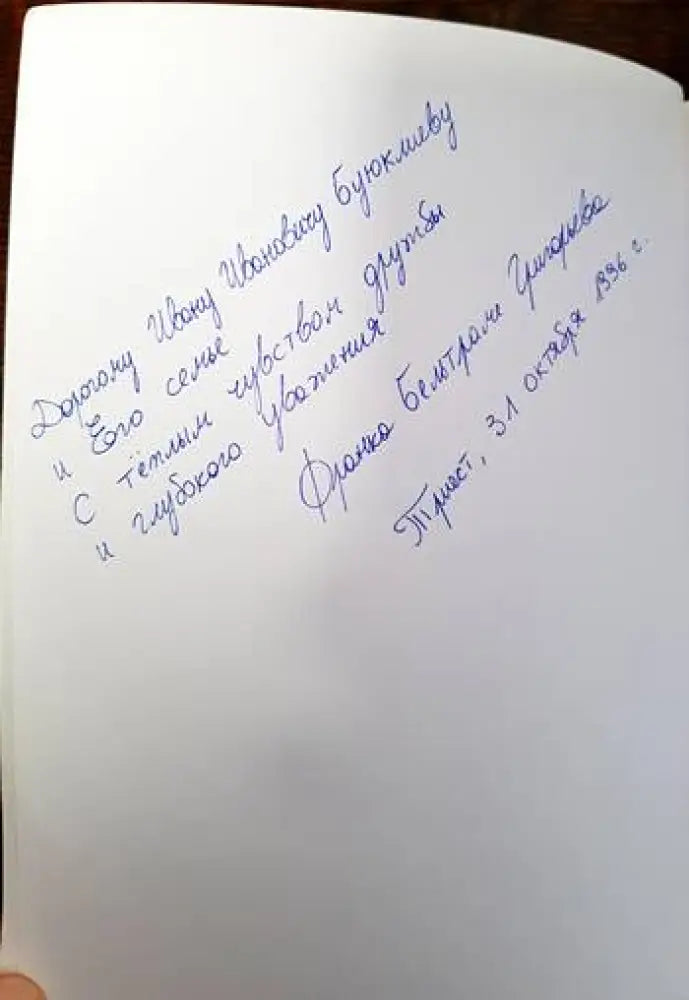 Дорогому Ивану Ивановичу Буюклиеву
и Его семье
С тёплым чувством дружбы
и глубокого уважения
Франка Бельтраме Григорьева
Триест, 31 октября 1996 г.